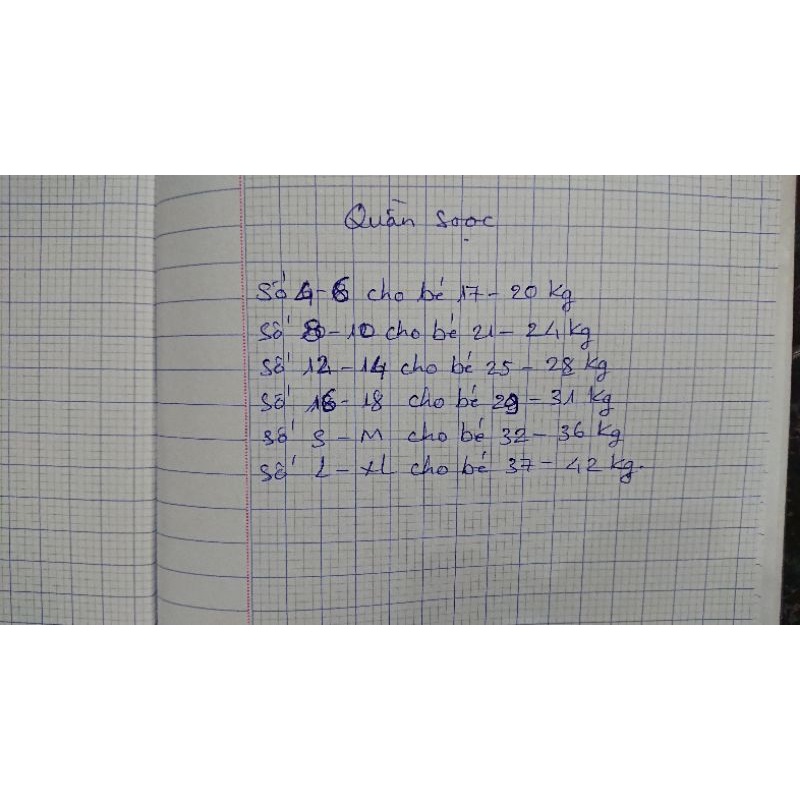 Quần sọoc
Số 4-6 cho bé 17-20 kg
Số 8-10 cho bé 21-24 kg
Số 12-14 cho bé 25-28 kg
Số 16-18 cho bé 29-31 kg
Số S-M cho bé 32-36 kg
Số L-XL cho bé 37-42 kg.